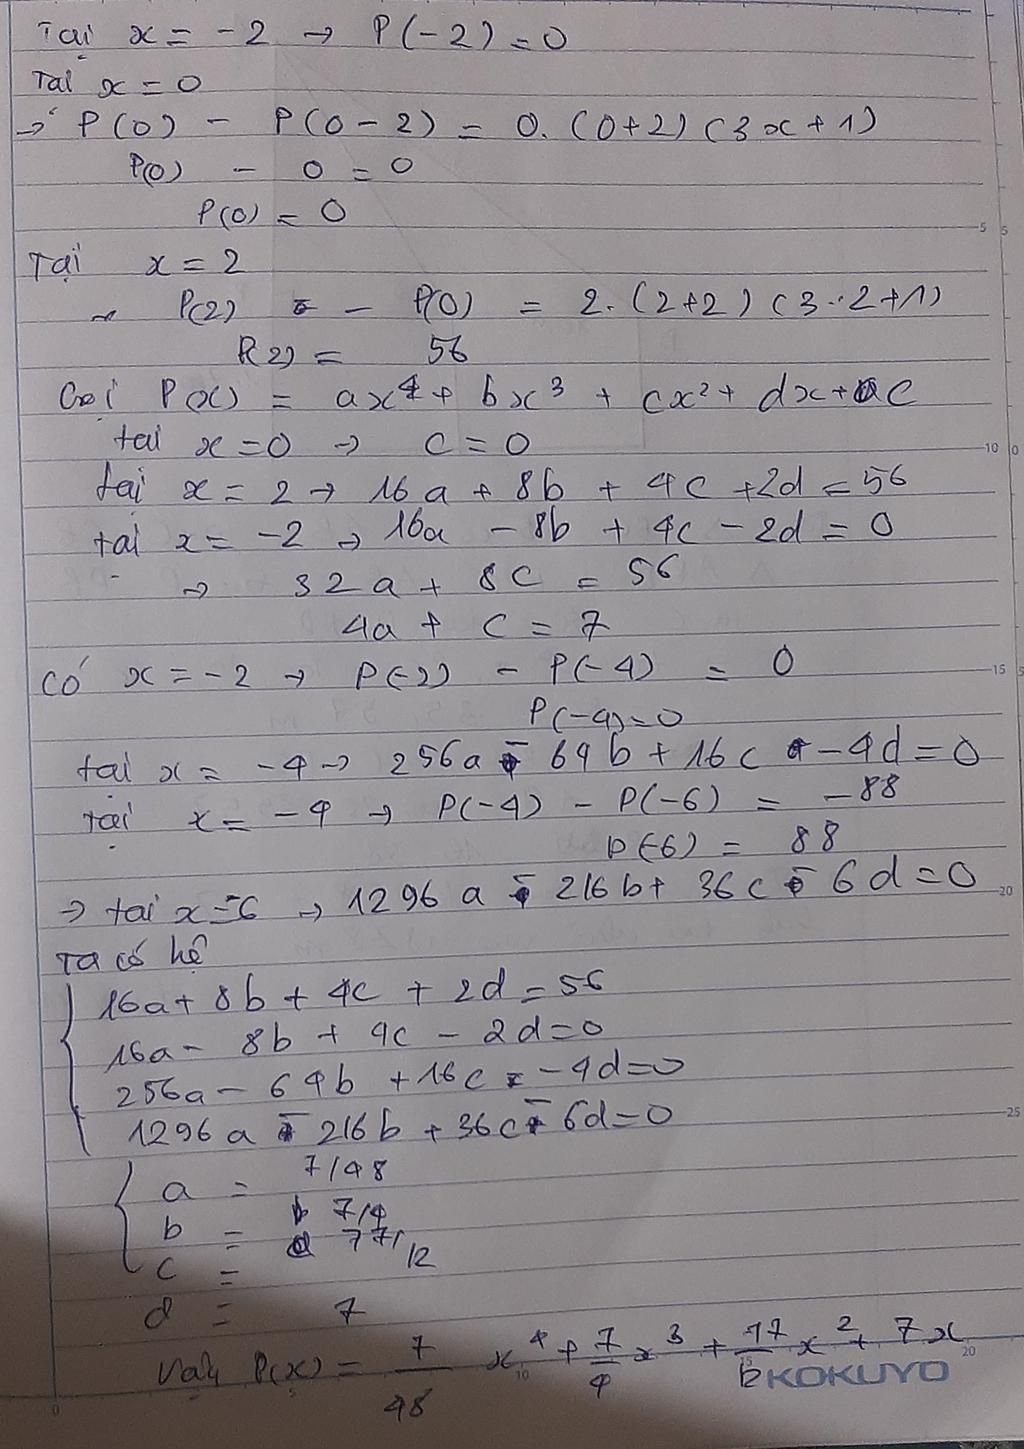 Tại x = -2 → P(-2) = 0
Tại x = 0
→ P(0) - P(0-2) = 0.(0+2)(3x+1)
P(0) - 0 = 0
P(0) = 0
Tại x = 2
P(2) - P(0) = 2.(2+2)(3.2+1)
P(2) = 56
Gọi P(x) = ax⁴ + bx³ + cx² + dx + e
tại x = 0 → e = 0
tại x = 2 → 16a + 8b + 4c + 2d = 56
tại x = -2 → 16a - 8b + 4c - 2d = 0
→ 32a + 8c = 56
4a + c = 7
có x = -2 → P(-2) - P(-4) = 0
P(-4) = 0
tại x = -4 → 256a - 64b + 16c - 4d = 0
Tại x = -4 → P(-4) - P(-6) = -88
P(-6) = 88
→ tại x = -6 → 1296a - 216b + 36c - 6d = 0
Ta có hệ
16a + 8b + 4c + 2d = 56
16a - 8b + 4c - 2d = 0
256a - 64b + 16c - 4d = 0
1296a - 216b + 36c - 6d = 0
a = 7/48
b = 7/4
c = 77/12
d = 7
Vậy P(x) = 7/48 x⁴ + 7/4 x³ + 77/12 x² + 7x
KOKUYO